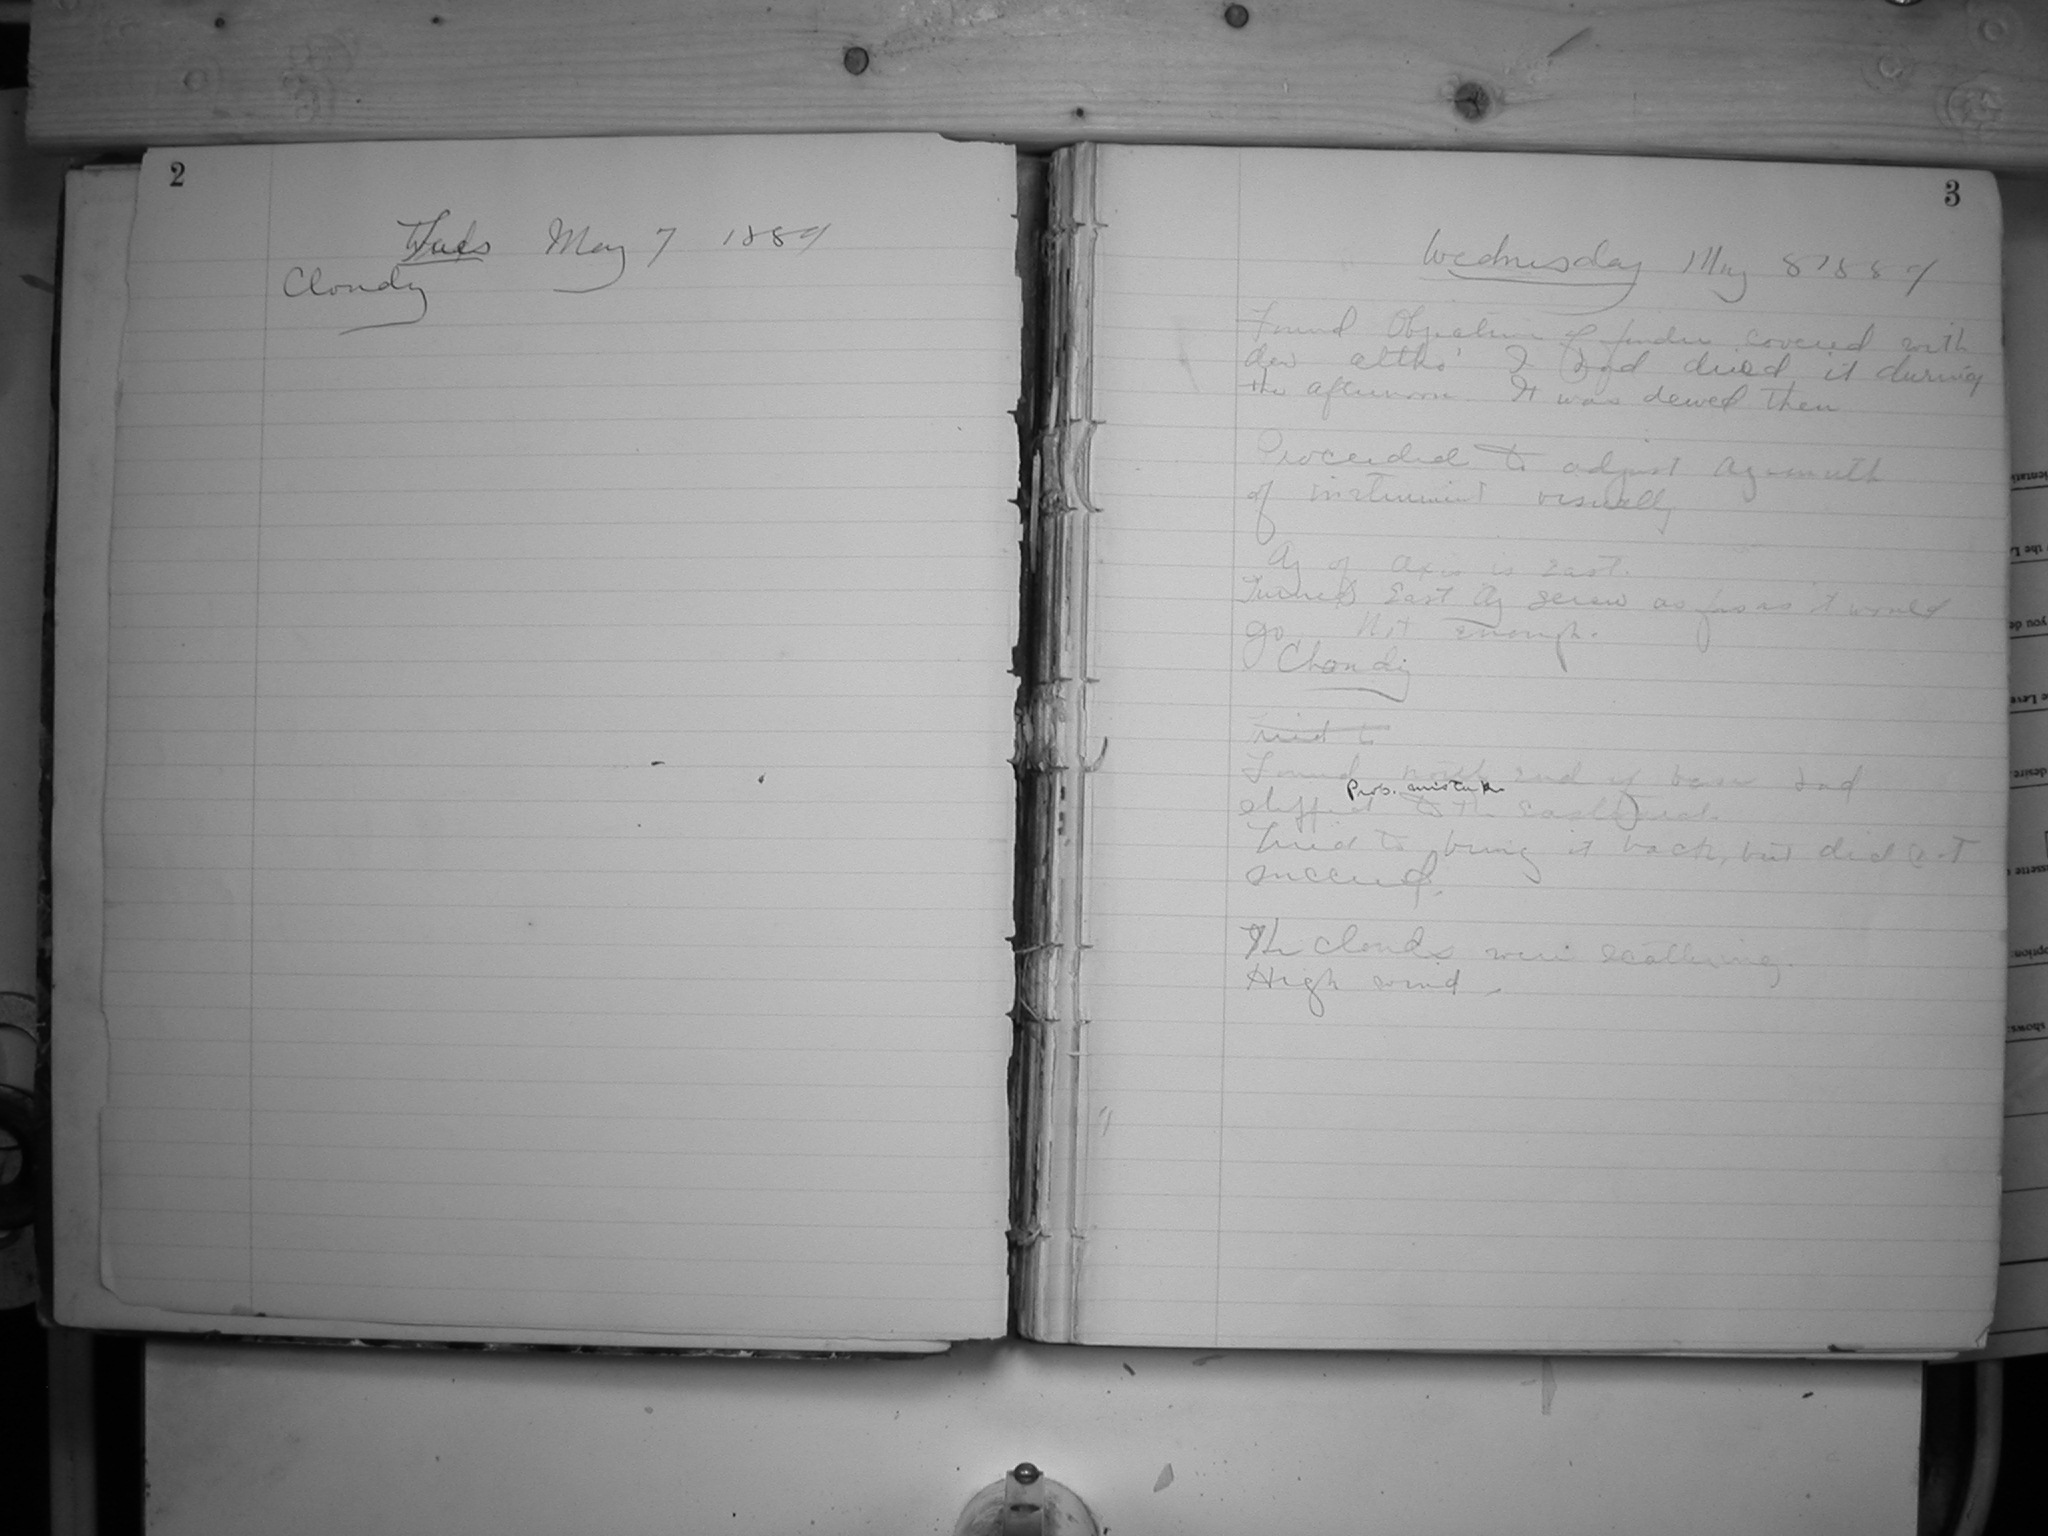 2
Tues May 7 1889
Cloudy
3
Wednesday May 8 1889
Found Objective of finder covered with
dew altho' I had dried it during
the afternoon It was dewed then
Proceeded to adjust Azimuth
of instrument visually
Az of axis is East.
Turned East Az screw as far as it would
go Not enough.
Cloudy
tried to
Found north end of beam had
Prob. mistake
slipped to the East
Tried to bring it back, but did not
succeed.
The clouds were scattering.
High wind.